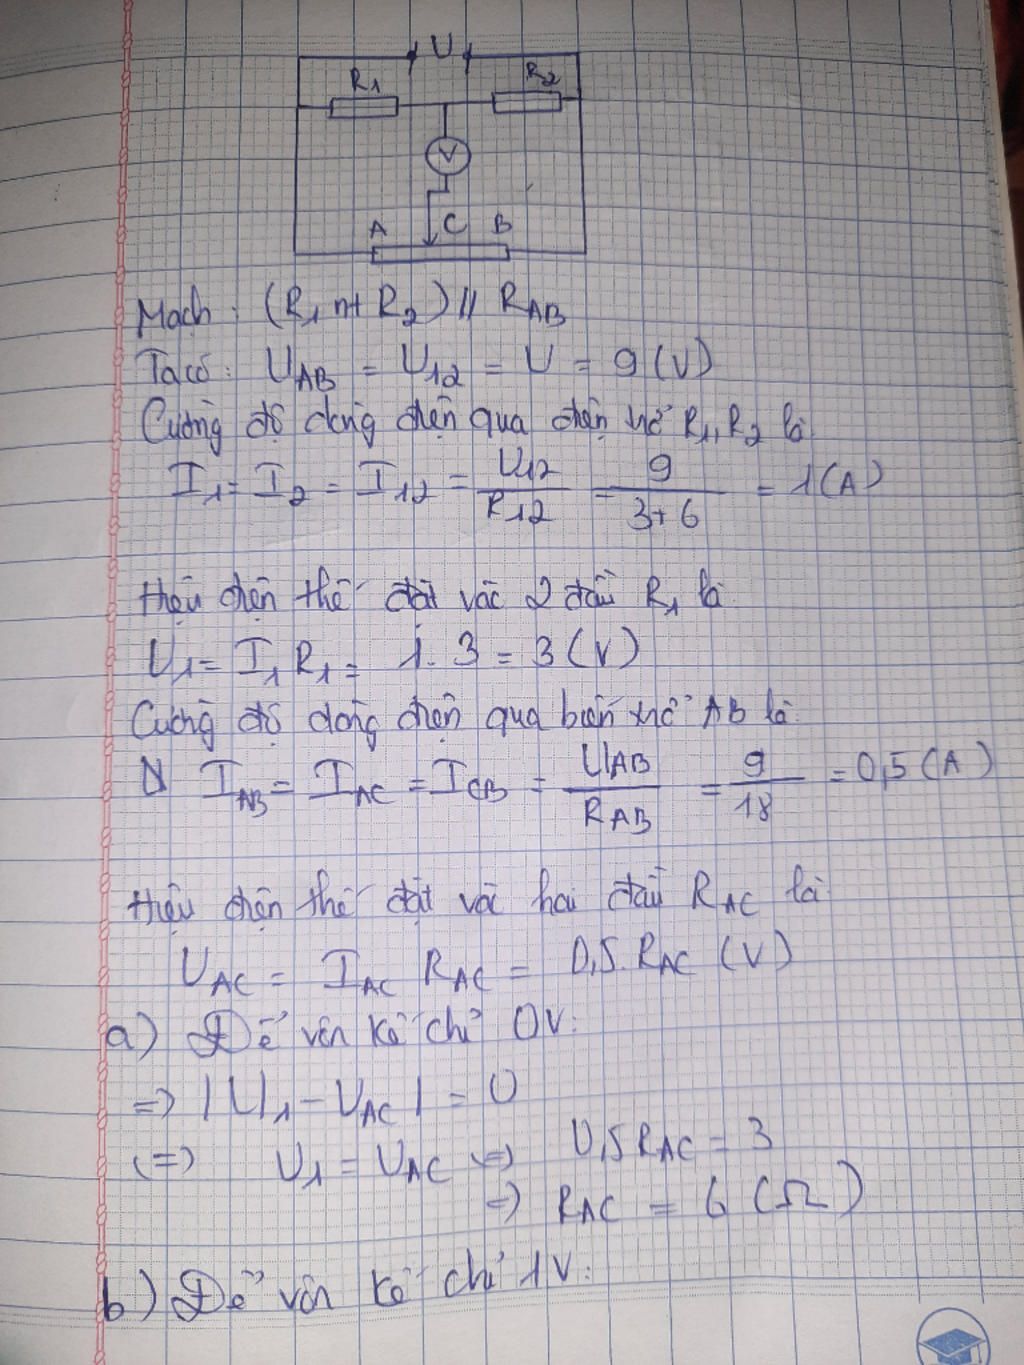 U
R1 R2
V
A C B
Mạch: (R1 nt R2) // RAB
Ta có: UAB = U12 = U = 9 (V)
Cường độ dòng điện qua điện trở R1, R2 là
I1 = I2 = I12 = U12 / R12 = 9 / 3+6 = 1 (A)
Hiệu điện thế đặt vào 2 đầu R1 là
U1 = I1 R1 = 1. 3 = 3 (V)
Cường độ dòng điện qua biến trở AB là
IAB = IAC = ICB = UAB / RAB = 9 / 18 = 0,5 (A)
Hiệu điện thế đặt vào hai đầu RAC là
UAC = IAC RAC = 0,5. RAC (V)
a) Để vôn kế chỉ 0V:
=> |U1 - UAC| = 0
(=) U1 = UAC (=) 0,5 RAC = 3
=) RAC = 6 (Ω)
b) Để vôn kế chỉ 1V: